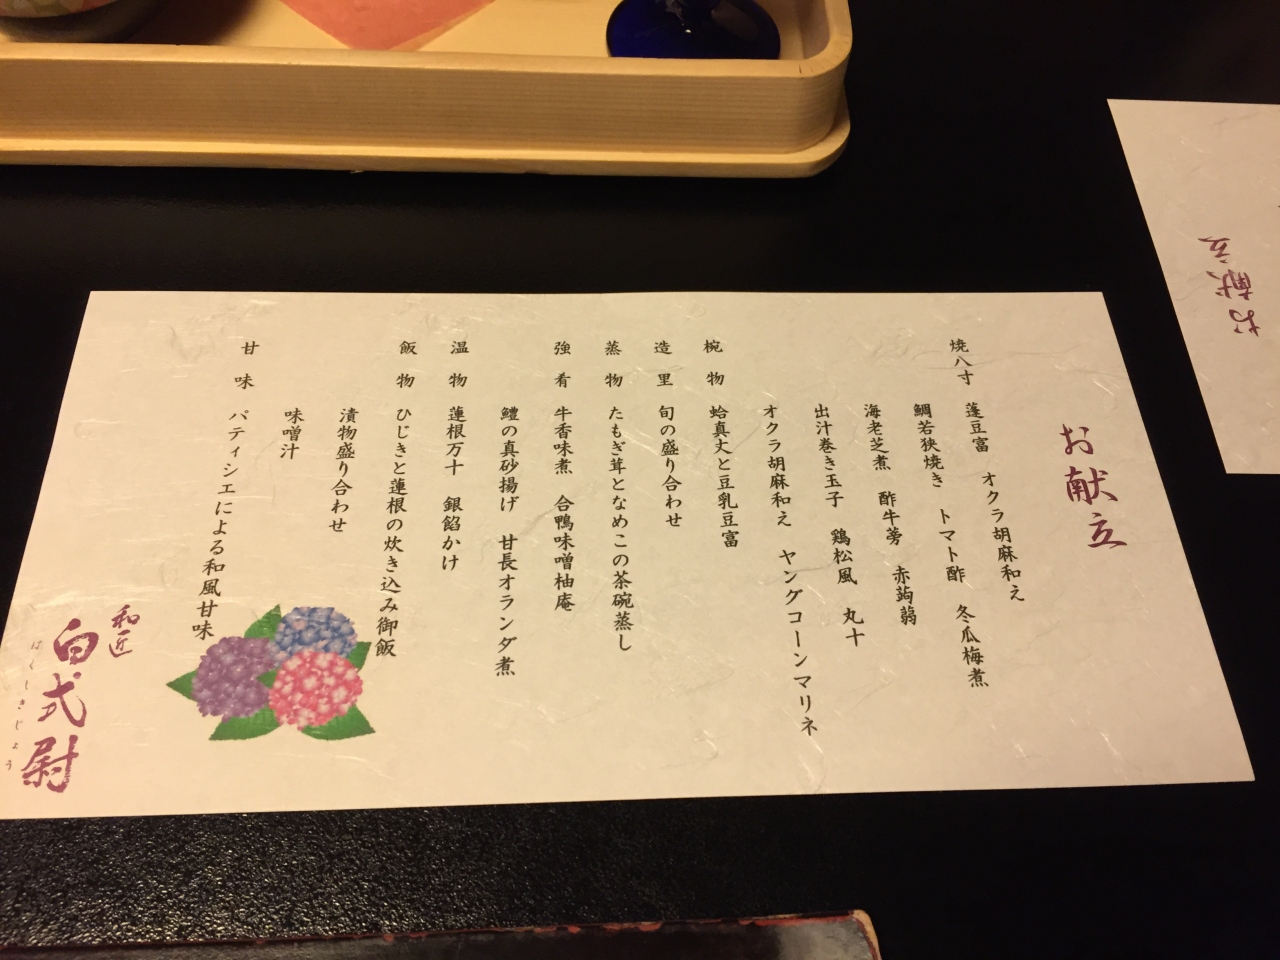 お献立
焼八寸 蓬豆富 オクラ胡麻和え
鯛若狭焼き トマト酢 冬瓜梅煮
海老芝煮 酢牛蒡 赤蒟蒻
出汁巻き玉子 鶏松風 丸十
オクラ胡麻和え ヤングコーンマリネ
椀物 蛤真丈と豆乳豆富
造里 旬の盛り合わせ
蒸物 たもぎ茸となめこの茶碗蒸し
強肴 牛香味煮 合鴨味噌柚庵
鱧の真砂揚げ 甘長オランダ煮
温物 蓮根万十 銀餡かけ
飯物 ひじきと蓮根の炊き込み御飯
漬物盛り合わせ
味噌汁
甘味 パティシエによる和風甘味
和匠
白式尉
はくしきじょう
お献立